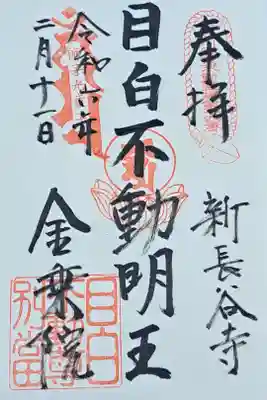 奉拝
新長谷寺
目白不動明王
令和六年
二月十一日
金乗院
目白
不動尊
別當